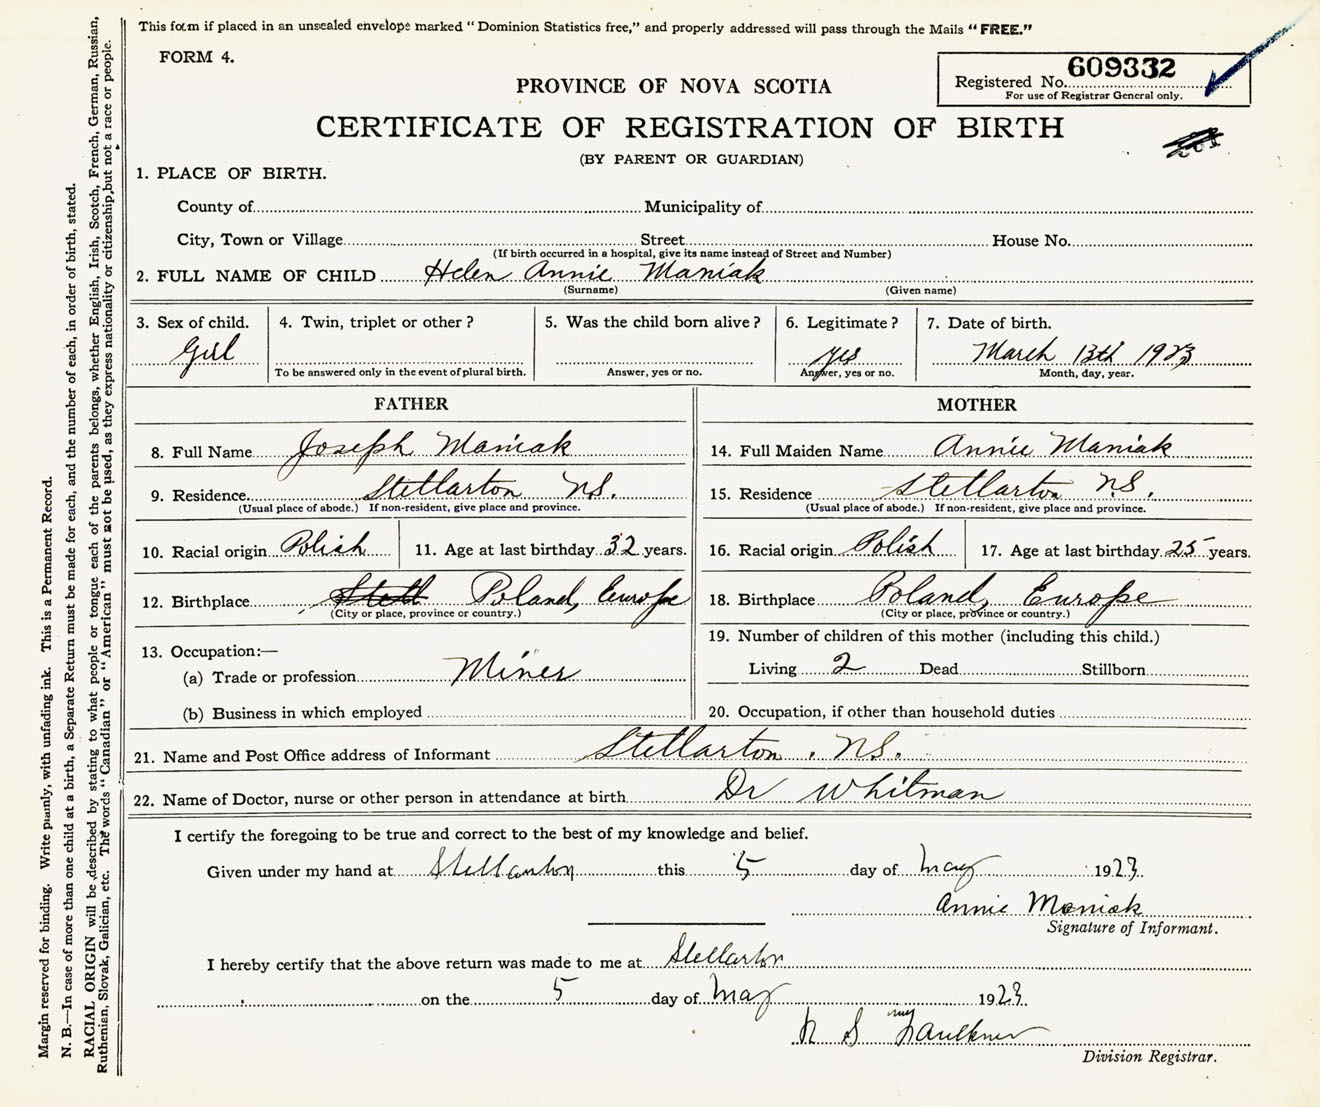 This form if placed in an unsealed envelope marked "Dominion Statistics free," and properly addressed will pass through the Mails "FREE."
FORM 4.
609332
Registered No.
For use of Registrar General only.
PROVINCE OF NOVA SCOTIA
CERTIFICATE OF REGISTRATION OF BIRTH
(BY PARENT OR GUARDIAN)
1. PLACE OF BIRTH.
County of Municipality of
City, Town or Village Street House No.
(If birth occurred in a hospital, give its name instead of Street and Number)
2. FULL NAME OF CHILD Helen Annie Maniak
(Surname) (Given name)
3. Sex of child. 4. Twin, triplet or other? 5. Was the child born alive? 6. Legitimate? 7. Date of birth.
Girl yes March 13th 1923
To be answered only in the event of plural birth. Answer, yes or no. Answer, yes or no. Month, day, year.
FATHER MOTHER
8. Full Name Joseph Maniak 14. Full Maiden Name Annie Maniak
9. Residence Stellarton N.S. 15. Residence Stellarton N.S.
(Usual place of abode.) If non-resident, give place and province. (Usual place of abode.) If non-resident, give place and province.
10. Racial origin Polish 11. Age at last birthday 32 years. 16. Racial origin Polish 17. Age at last birthday 25 years.
12. Birthplace Stell Poland, Europe 18. Birthplace Poland, Europe
(City or place, province or country.) (City or place, province or country.)
13. Occupation:— 19. Number of children of this mother (including this child.)
(a) Trade or profession Miner Living 2 Dead Stillborn
(b) Business in which employed 20. Occupation, if other than household duties
21. Name and Post Office address of Informant Stellarton. N.S.
22. Name of Doctor, nurse or other person in attendance at birth Dr Whitman
I certify the foregoing to be true and correct to the best of my knowledge and belief.
Given under my hand at Stellarton this 5 day of May 1923.
Annie Maniak
Signature of Informant.
I hereby certify that the above return was made to me at Stellarton
on the 5 day of May 1923.
Faulkner
Division Registrar.
Margin reserved for binding. Write plainly, with unfading ink. This is a Permanent Record.
N. B.—In case of more than one child at a birth, a Separate Return must be made for each, and the number of each, in order of birth, stated.
RACIAL ORIGIN will be described by stating to what people or tongue each of the parents belongs, whether English, Irish, Scotch, French, German, Russian,
Ruthenian, Slovak, Galician, etc. The words "Canadian" or "American" must not be used, as they express nationality or citizenship, but not a race or people.